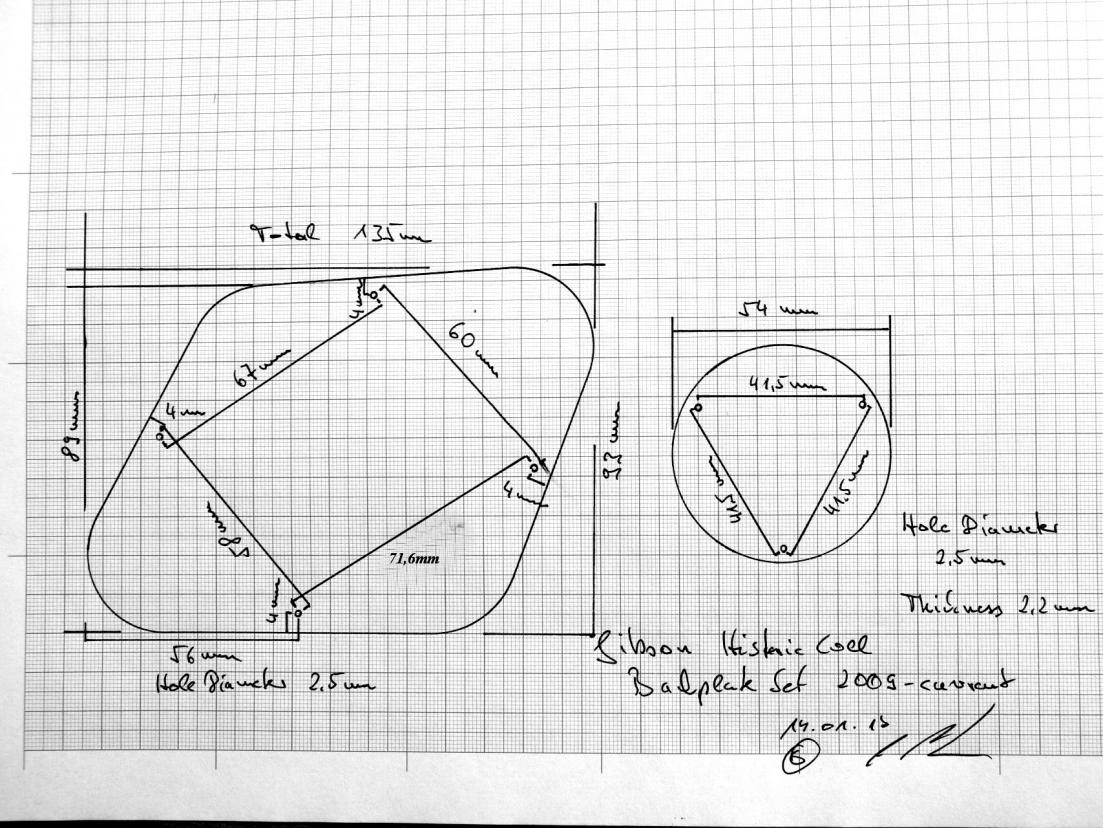 Total 135mm
4mm
60mm
67mm
4mm
89mm
93 mm
4mm
58mm
71,6mm
4mm
56mm
Hole Diameter 2.5mm
54 mm
41,5mm
41,5mm
41.5mm
Hole Diameter
2,5mm
Thickness 2,2mm
Gibson Historic Coll
Backplate Set 2009-current
14.01.13
6